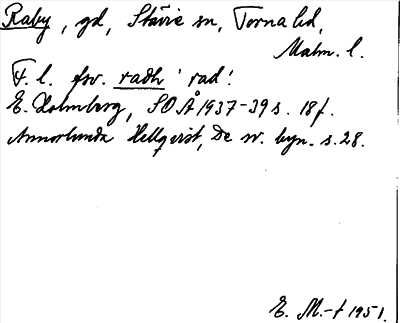 Raby, gd, Stävie sn, Torna hd,
Malm. l.
F. l. fsv. radh 'rad'.
E. Holmberg, SOÅ 1937-39 s. 18 f.
Annorlunda Hellqvist, De sv. byn. s. 28.
E. M.-t 1951.